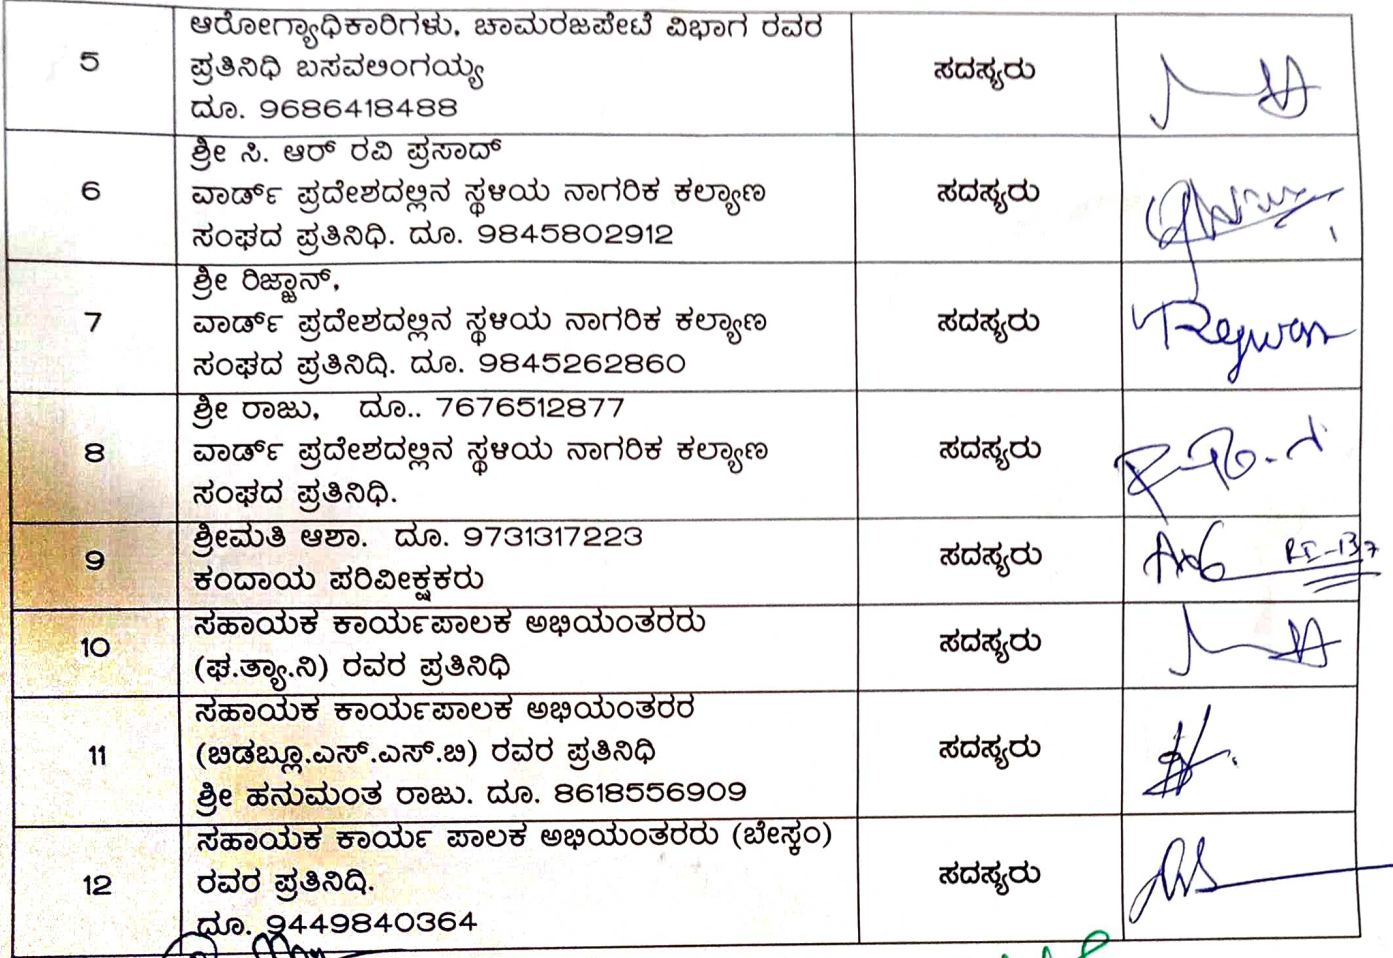 5
ಆರೋಗ್ಯಾಧಿಕಾರಿಗಳು, ಚಾಮರಜಪೇಟೆ ವಿಭಾಗ ರವರ
ಪ್ರತಿನಿಧಿ ಬಸವಲಿಂಗಯ್ಯ
ದೂ. 9686418488
ಸದಸ್ಯರು
6
ಶ್ರೀ ಸಿ. ಆರ್ ರವಿ ಪ್ರಸಾದ್
ವಾರ್ಡ್ ಪ್ರದೇಶದಲ್ಲಿನ ಸ್ಥಳಿಯ ನಾಗರಿಕ ಕಲ್ಯಾಣ
ಸಂಘದ ಪ್ರತಿನಿಧಿ. ದೂ. 9845802912
ಸದಸ್ಯರು
7
ಶ್ರೀ ರಿಜ್ವಾನ್,
ವಾರ್ಡ್ ಪ್ರದೇಶದಲ್ಲಿನ ಸ್ಥಳಿಯ ನಾಗರಿಕ ಕಲ್ಯಾಣ
ಸಂಘದ ಪ್ರತಿನಿಧಿ. ದೂ. 9845262860
ಸದಸ್ಯರು
8
ಶ್ರೀ ರಾಜು, ದೂ.. 7676512877
ವಾರ್ಡ್ ಪ್ರದೇಶದಲ್ಲಿನ ಸ್ಥಳಿಯ ನಾಗರಿಕ ಕಲ್ಯಾಣ
ಸಂಘದ ಪ್ರತಿನಿಧಿ.
ಸದಸ್ಯರು
9
ಶ್ರೀಮತಿ ಆಶಾ. ದೂ. 9731317223
ಕಂದಾಯ ಪರಿವೀಕ್ಷಕರು
ಸದಸ್ಯರು
RI-137
10
ಸಹಾಯಕ ಕಾರ್ಯಪಾಲಕ ಅಭಿಯಂತರರು
(ಘ.ತ್ಯಾ.ನಿ) ರವರ ಪ್ರತಿನಿಧಿ
ಸದಸ್ಯರು
11
ಸಹಾಯಕ ಕಾರ್ಯಪಾಲಕ ಅಭಿಯಂತರರ
(ಬಿಡಬ್ಲೂ.ಎಸ್.ಎಸ್.ಬಿ) ರವರ ಪ್ರತಿನಿಧಿ
ಶ್ರೀ ಹನುಮಂತ ರಾಜು. ದೂ. 8618556909
ಸದಸ್ಯರು
12
ಸಹಾಯಕ ಕಾರ್ಯ ಪಾಲಕ ಅಭಿಯಂತರರು (ಬೇಸ್ಕಂ)
ರವರ ಪ್ರತಿನಿಧಿ.
ದೂ. 9449840364
ಸದಸ್ಯರು